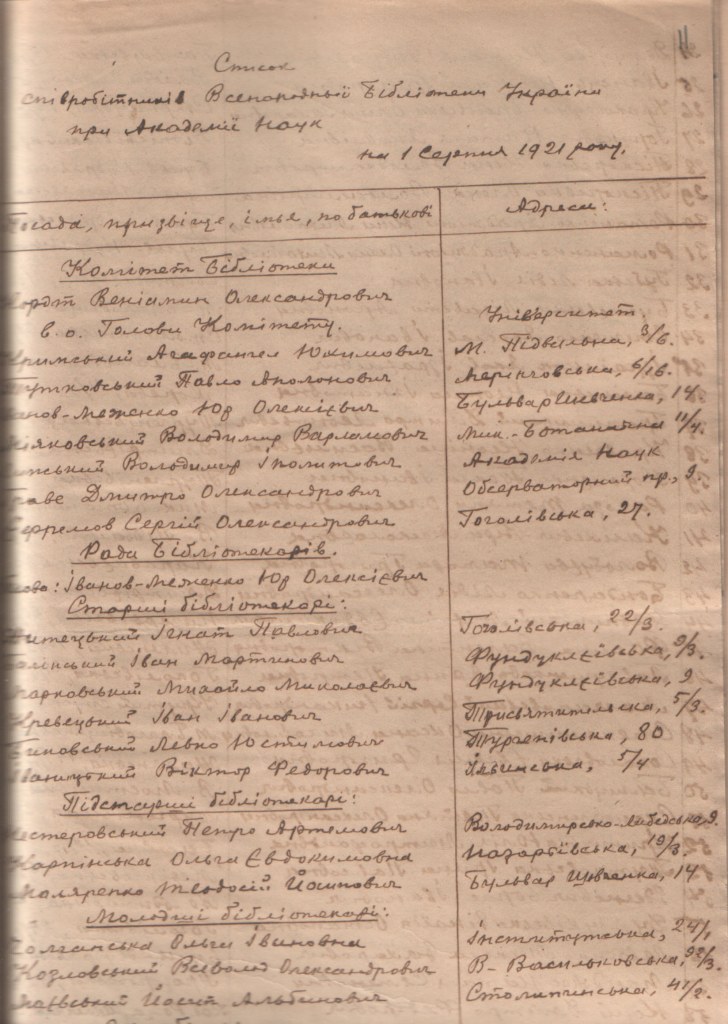 11
Список
співробітників Всенародньої Бібліотеки України
при Академії Наук
на 1 Серпня 1921 року.
Посада, призвіще, імья, по батькові Адреси:
Комітет Бібліотеки
Кордт Веніамин Олександрович Університет.
в. о. Голови Комітету.
Кримський Агафангел Юхимович М. Підвальна, 3/6.
Тутковський Павло Аполонович Мерінговська, 6/16.
Іванов-Меженко Юр Олексієвич Бульвар Шевченка, 14.
Володимир Варламович Мик.-Ботанична 11/4.
Липський Володимир Іполитович Академія Наук
Граве Дмитро Олександрович Обсерваторний пр., 9.
Єфремов Сергій Олександрович Гоголівська, 27.
Рада Бібліотекарів.
Голова: Іванов-Меженко Юр Олексієвич
Старші бібліотекарі:
Житецький Ігнат Павлович Гоголівська, 22/3.
Іван Мартинович Фундуклєївська, 9/3.
Марковський Михайло Миколаєвич Фундуклєївська, 9
Кревецький Іван Іванович Трисвятительська, 5/3.
Биковський Левко Юстимович Тургенівська, 80
Іваницький Віктор Федорович Ільинська, 5/4
Підстарші бібліотекарі:
Нестеровський Петро Артемович Володимирсько-Либедська, 9.
Карпінська Ольга Євдокимовна Назарівська, 19/3.
Маляренко Теодосій Йосипович Бульвар Шевченка, 14
Молодші бібліотекарі:
Ольга Івановна Інститутська, 24/1
Козловський Всеволод Олександрович В-Васильковська, 92/3.
Йосип Альбинович Столипинська, 47/2.